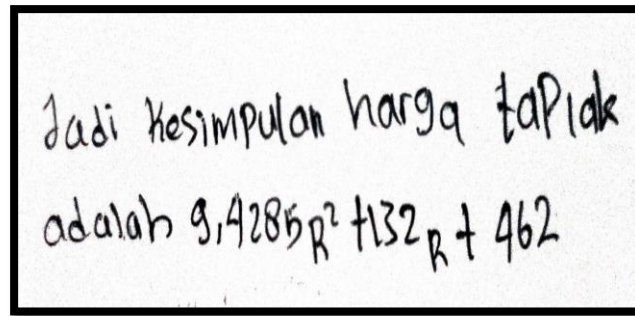 Jadi Kesimpulan harga taplak
adalah 9,4285R² +132R + 462